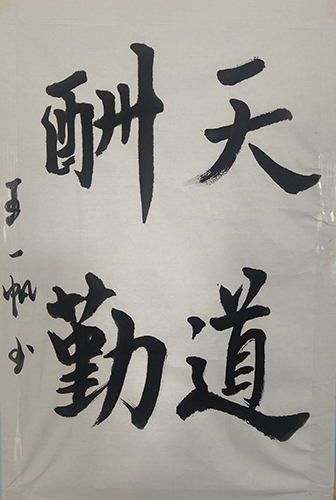 天道
酬勤
王一帆书